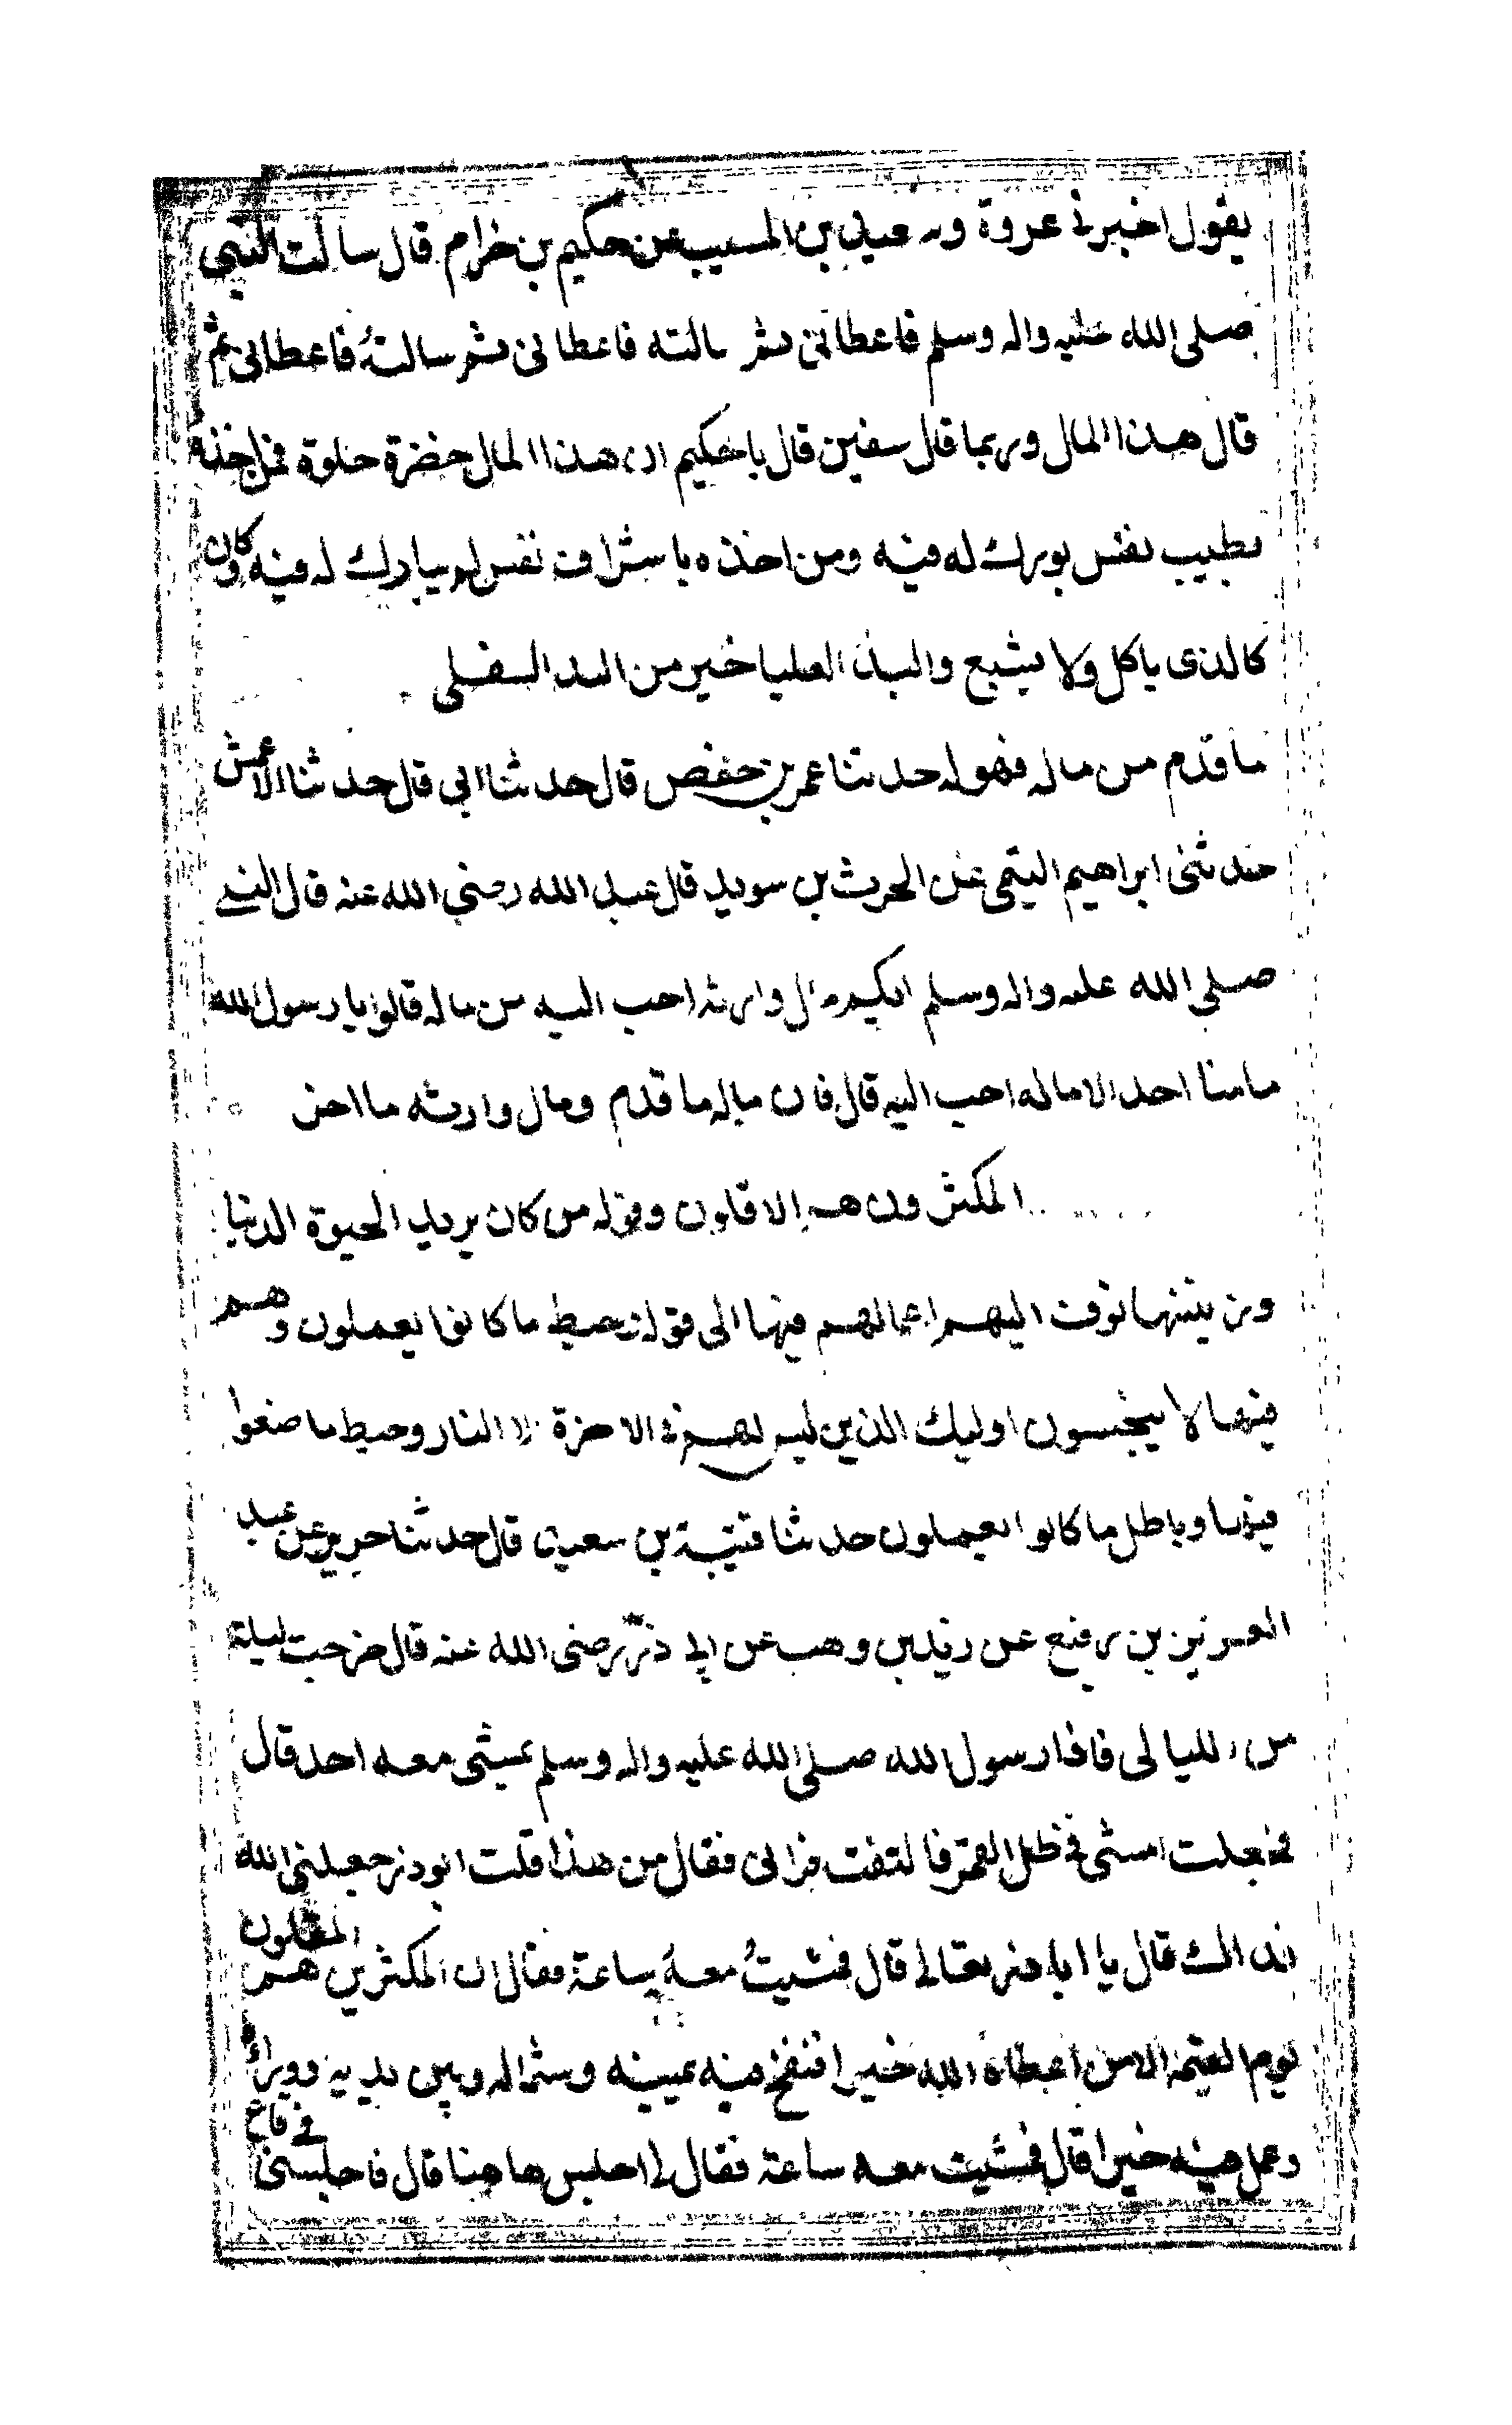 يقول اخبرني عروة وسعيد بن المسيب عن حكيم بن حزام قال سالت النبي
صلى الله عليه واله وسلم فاعطاني ثم سالته فاعطاني ثم سالته فاعطاني ثم
قال هذا المال وربما قال سفين قال يا حكيم ان هذا المال خضرة حلوة فمن اخذه
بطيب نفس بورك له فيه ومن اخذه باشراف نفس لم يبارك له فيه وكان
كالذى ياكل ولا يشبع واليد العليا خير من اليد السفلى
ما قدم من ماله فهو له حدثنا عمر بن حفص قال حدثنا ابي قال حدثنا الاعمش
حدثنى ابراهيم التيمى عن الحرث بن سويد قال عبد الله رضي الله عنه قال النبي
صلى الله عليه واله وسلم ايكم مال وارثه احب اليه من ماله قالوا يا رسول الله
ما منا احد الا ماله احب اليه قال فان ماله ما قدم ومال وارثه ما اخر
المكثرون هم الاقلون وقوله من كان يريد الحيوة الدنيا
وزينتها نوف اليهم اعمالهم فيها الى قوله حبط ما كانوا يعملون وهم
فيها لا يبخسون اوليك الذين ليس لهم في الاخرة الا النار وحبط ما صنعوا
فيها وباطل ما كانوا يعملون حدثنا قتيبة بن سعيد قال حدثنا جرير عن عبد
العزيز بن رفيع عن زيد بن وهب عن ابي ذر رضى الله عنه قال خرجت ليلة
من الليالى فاذا رسول الله صلى الله عليه واله وسلم يمشى معه احد قال
فجعلت امشى في ظل القمر فالتفت فرانى فقال من هذا قلت ابو ذر جعلني الله
فداك قال يا ابا ذر تعالى قال فمشيت معه ساعة فقال ان المكثرين هم المقلون
يوم القيمة الا من اعطاه الله خيرا فنفخ فيه يمينه وشماله وبين يديه ووراه
وعمل فيه خيرا قال فمشيت معه ساعة فقال لي اجلس ها هنا قال فاجلسنى في قاع